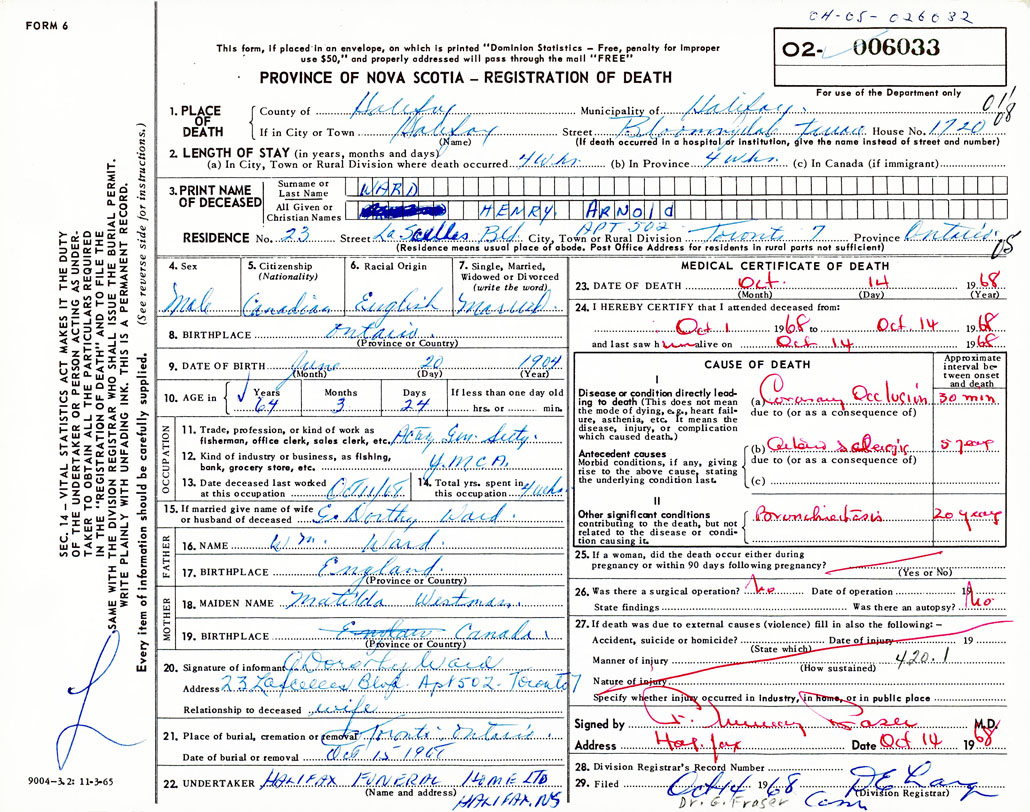 FORM 6
04-05-026032
02- 006033
This form, if placed in an envelope, on which is printed "Dominion Statistics – Free, penalty for improper
use $50," and properly addressed will pass through the mail "FREE"
PROVINCE OF NOVA SCOTIA – REGISTRATION OF DEATH
For use of the Department only
1. PLACE OF DEATH
County of Halifax Municipality of Halifax.
If in City or Town Halifax Street Terrace House No. 1720
(Name) (If death occurred in a hospital or institution, give the name instead of street and number)
2. LENGTH OF STAY (in years, months and days)
(a) In City, Town or Rural Division where death occurred 4 wks. (b) In Province 4 wks. (c) In Canada (if immigrant)
3. PRINT NAME OF DECEASED
Surname or Last Name WARD
All Given or Christian Names HENRY ARNOLD
APT 502
RESIDENCE No. 23 Street LaScelles Bld. City, Town or Rural Division Toronto 7 Province Ontario
(Residence means usual place of abode. Post Office Address for residents in rural parts not sufficient)
15
4. Sex
Male
5. Citizenship
(Nationality)
Canadian
6. Racial Origin
English
7. Single, Married,
Widowed or Divorced
(write the word)
Married
8. BIRTHPLACE Ontario
(Province or Country)
9. DATE OF BIRTH June 20 1904
(Month) (Day) (Year)
10. AGE in Years Months Days If less than one day old
64 3 24 hrs. or min.
OCCUPATION
11. Trade, profession, or kind of work as
fisherman, office clerk, sales clerk, etc. Acting Gen. Secty.
12. Kind of industry or business, as fishing,
bank, grocery store, etc. Y.M.C.A.
13. Date deceased last worked
at this occupation Oct 11/68
14. Total yrs. spent in
this occupation 4 wks
15. If married give name of wife
or husband of deceased E. Dorthy Ward
FATHER
16. NAME Wm. Ward
17. BIRTHPLACE England
(Province or Country)
MOTHER
18. MAIDEN NAME Matilda Westman
19. BIRTHPLACE England Canada.
(Province or Country)
20. Signature of informant Dorothy Ward
Address 23 Lascelles Blvd. Apt 502. Toronto 7
Relationship to deceased wife
21. Place of burial, cremation or removal Toronto Ontario
Date of burial or removal Oct 15 1968
22. UNDERTAKER HALIFAX FUNERAL HOME LTD
(Name and address) HALIFAX, NS
MEDICAL CERTIFICATE OF DEATH
23. DATE OF DEATH Oct. 14 1968
(Month) (Day) (Year)
24. I HEREBY CERTIFY that I attended deceased from:
Oct 1 1968 to Oct. 14 1968
and last saw him alive on Oct 14 1968
CAUSE OF DEATH
Approximate
interval be-
tween onset
and death
I
Disease or condition directly lead-
ing to death (This does not mean
the mode of dying, e.g., heart fail-
ure, asthenia, etc. It means the
disease, injury, or complication
which caused death.)
(a) Coronary Occlusion 30 min
due to (or as a consequence of)
Antecedent causes
Morbid conditions, if any, giving
rise to the above cause, stating
the underlying condition last.
(b) 5 year
due to (or as a consequence of)
(c)
II
Other significant conditions
contributing to the death, but not
related to the disease or condi-
tion causing it.
Bronchiectasis 20 years
25. If a woman, did the death occur either during
pregnancy or within 90 days following pregnancy?
(Yes or No)
26. Was there a surgical operation? No Date of operation 19
State findings Was there an autopsy? No
27. If death was due to external causes (violence) fill in also the following: –
Accident, suicide or homicide? Date of injury 19
(State which)
Manner of injury 420.1
(How sustained)
Nature of injury
Specify whether injury occurred in Industry, in home, or in public place
Signed by Murray Fraser M.D.
Address Halifax Date Oct 14 1968
28. Division Registrar's Record Number
29. Filed Oct 14 1968
(Division Registrar)
Dr. G. Fraser
SEC. 14 – VITAL STATISTICS ACT MAKES IT THE DUTY
OF THE UNDERTAKER OR PERSON ACTING AS UNDER-
TAKER TO OBTAIN ALL THE PARTICULARS REQUIRED
IN THE "REGISTRATION OF DEATH" AND TO FILE THE
SAME WITH THE DIVISION REGISTRAR WHO SHALL ISSUE THE BURIAL PERMIT.
WRITE PLAINLY WITH UNFADING INK. THIS IS A PERMANENT RECORD.
Every item of information should be carefully supplied. (See reverse side for instructions.)
9004-3.2: 11-3-65